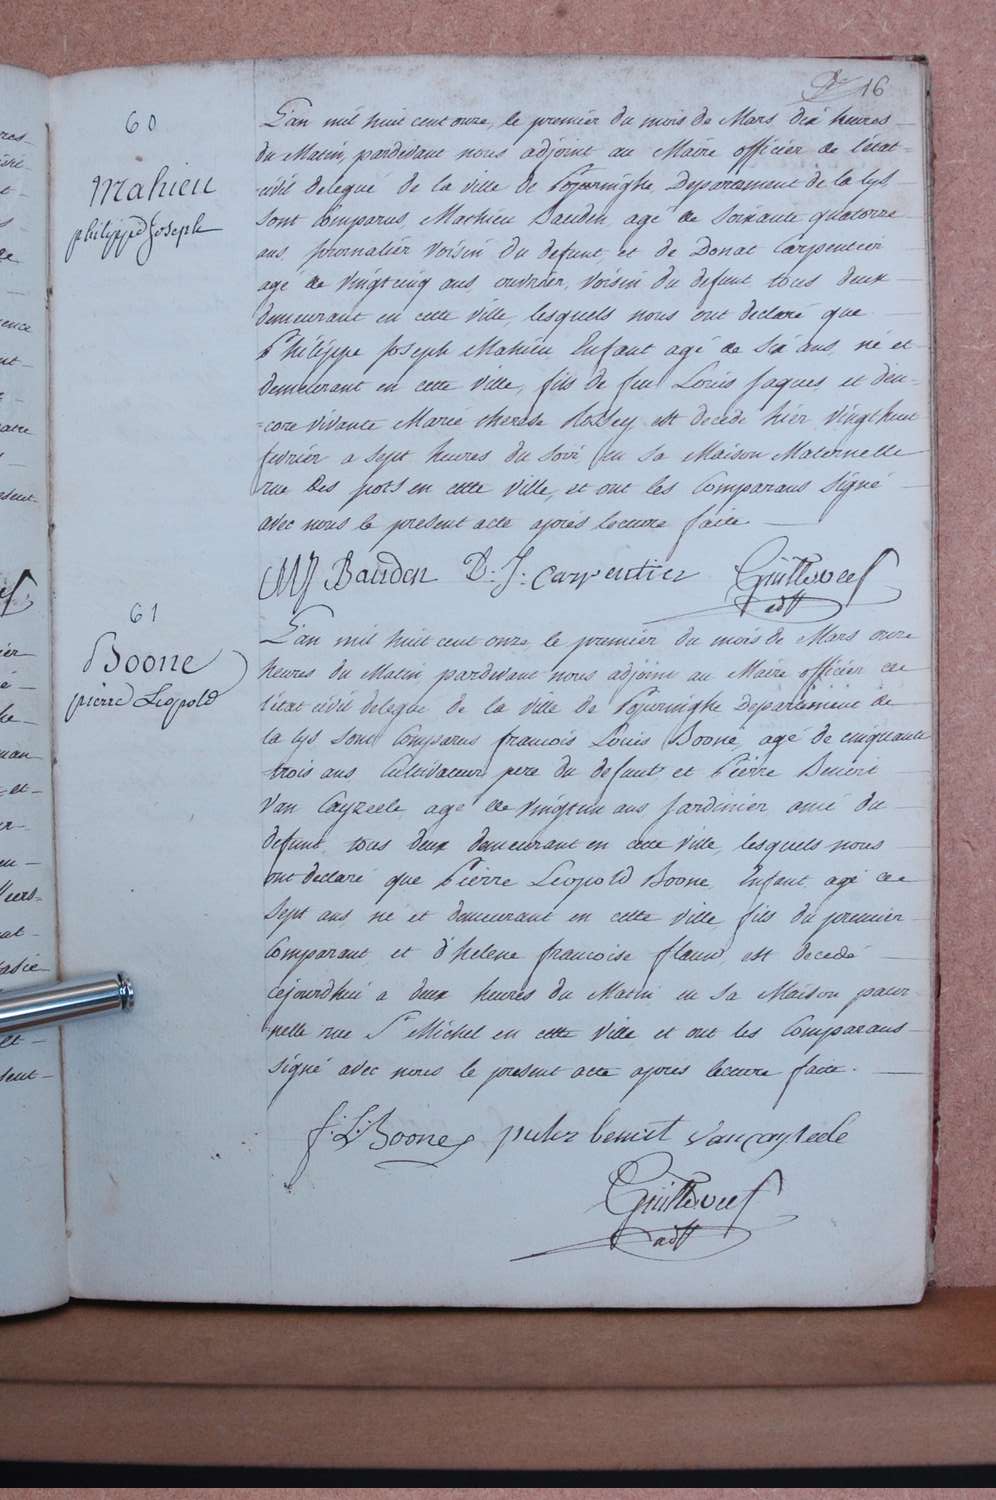 16
60
Mahieu
philippe Joseph
L'an mil huit cent onze, le premier du mois de Mars dix heures
du Matin, pardevant nous adjoint au Maire officier de l'état=
civil delegué de la ville de Poperinghe Departement de la lys
sont Comparus Mathieu Bauden agé de soixante quatorze
ans, journalier voisin du defunt, et de Donat Carpentier
agé de vingt cinq ans, ouvrier, voisin du defunt, tous deux
demeurant en cette ville, lesquels nous ont declaré que
Philippe Joseph Mahieu Enfant agé de six ans, né et
demeurant en cette ville, fils de feu Louis Jaques, et d'en-
=core vivante Marie therese est decedé hier vingt huit
fevrier a sept heures du soir, en sa Maison Maternelle
rue des pots en cette ville, et ont les Comparans signé
avec nous le present acte après lecture faite
MJ Bauden D: J: Carpentier
adjt
61
Boone
pierre Leopold
L'an mil huit cent onze, le premier du mois de Mars onze
heures du Matin pardevant nous adjoint au Maire officier de
l'état civil delegué de la ville de Poperinghe Departement de
la lys sont Comparus francois Louis Boone, agé de cinquante
trois ans Cultivateur pere du defunt et Pierre Benoit
van Cayzeele agé de vingt un ans Jardinier ami du
defunt, tous deux demeurant en cette ville, lesquels nous
ont declaré que Pierre Leopold Boone, Enfant, agé de
sept ans, né et demeurant en cette ville fils du premier
Comparant, et d'helene francoise est decedé
cejourd'hui a deux heures du Matin en sa Maison pater-
nelle rue St Michel en cette ville et ont les Comparans
signé avec nous le present acte apres lecture faite.
f: L: Boone benoit vancayseele
adjt